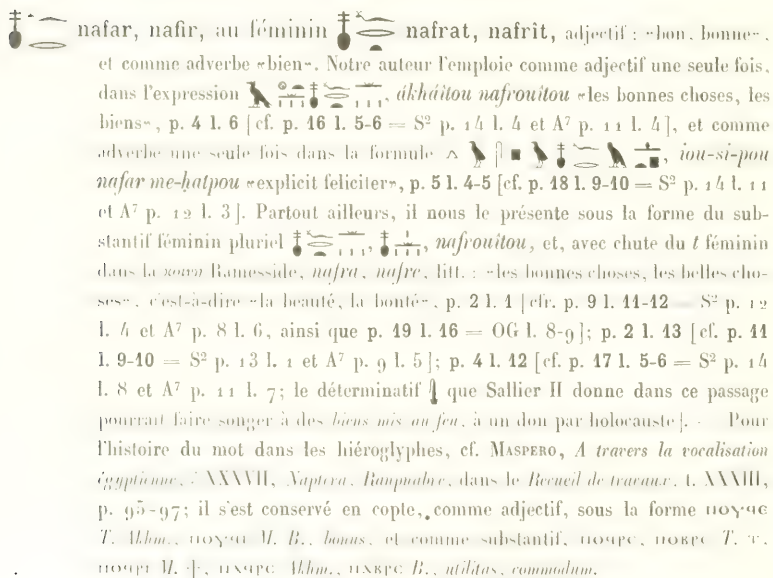 nafar, nafir, au féminin nafrat, nafrît, adjectif : «bon, bonne»,
et comme adverbe «bien». Notre auteur l'emploie comme adjectif une seule fois,
dans l'expression , ákháîtou nafrouîtou «les bonnes choses, les
biens», p. 4 l. 6 [cf. p. 16 l. 5-6 = S² p. 14 l. 4 et A⁷ p. 11 l. 4], et comme
adverbe une seule fois dans la formule , iou-si-pou
nafar me-hatpou «explicit feliciter», p. 5 l. 4-5 [cf. p. 18 l. 9-10 = S² p. 14 l. 11
et A⁷ p. 12 l. 3]. Partout ailleurs, il nous le présente sous la forme du sub-
stantif féminin pluriel , , nafrouîtou, et, avec chute du t féminin
dans la κοινη Ramesside, nafra, nafre, litt. : «les bonnes choses, les belles cho-
ses», c'est-à-dire «la beauté, la bonté», p. 2 l. 1 [cfr. p. 9 l. 11-12 S² p. 12
l. 4 et A⁷ p. 8 l. 6, ainsi que p. 19 l. 16 = OG l. 8-9]; p. 2 l. 13 [cf. p. 11
l. 9-10 = S² p. 13 l. 1 et A⁷ p. 9 l. 5]; p. 4 l. 12 [cf. p. 17 l. 5-6 = S² p. 14
l. 8 et A⁷ p. 11 l. 7; le déterminatif que Sallier II donne dans ce passage
pourrait faire songer à des biens mis au feu, à un don par holocauste]. - Pour
l'histoire du mot dans les hiéroglyphes, cf. MASPERO, A travers la vocalisation
égyptienne, XXXVII, dans le Recueil de travaux, t. XXXIII,
p. 95-97; il s'est conservé en copte, comme adjectif, sous la forme ⲛⲟⲩϥⲉ
T. Akhm., ⲛⲟⲩϥⲓ M. B., bonus, et comme substantif, ⲛⲟϥⲣⲉ, ⲛⲟⲃⲣⲉ T. ⲧ,
ⲛⲟϥⲣⲓ M. ϯ, ⲛⲁϥⲣⲉ Akhm., ⲛⲁⲃⲣⲉ B., utilitas, commodum.